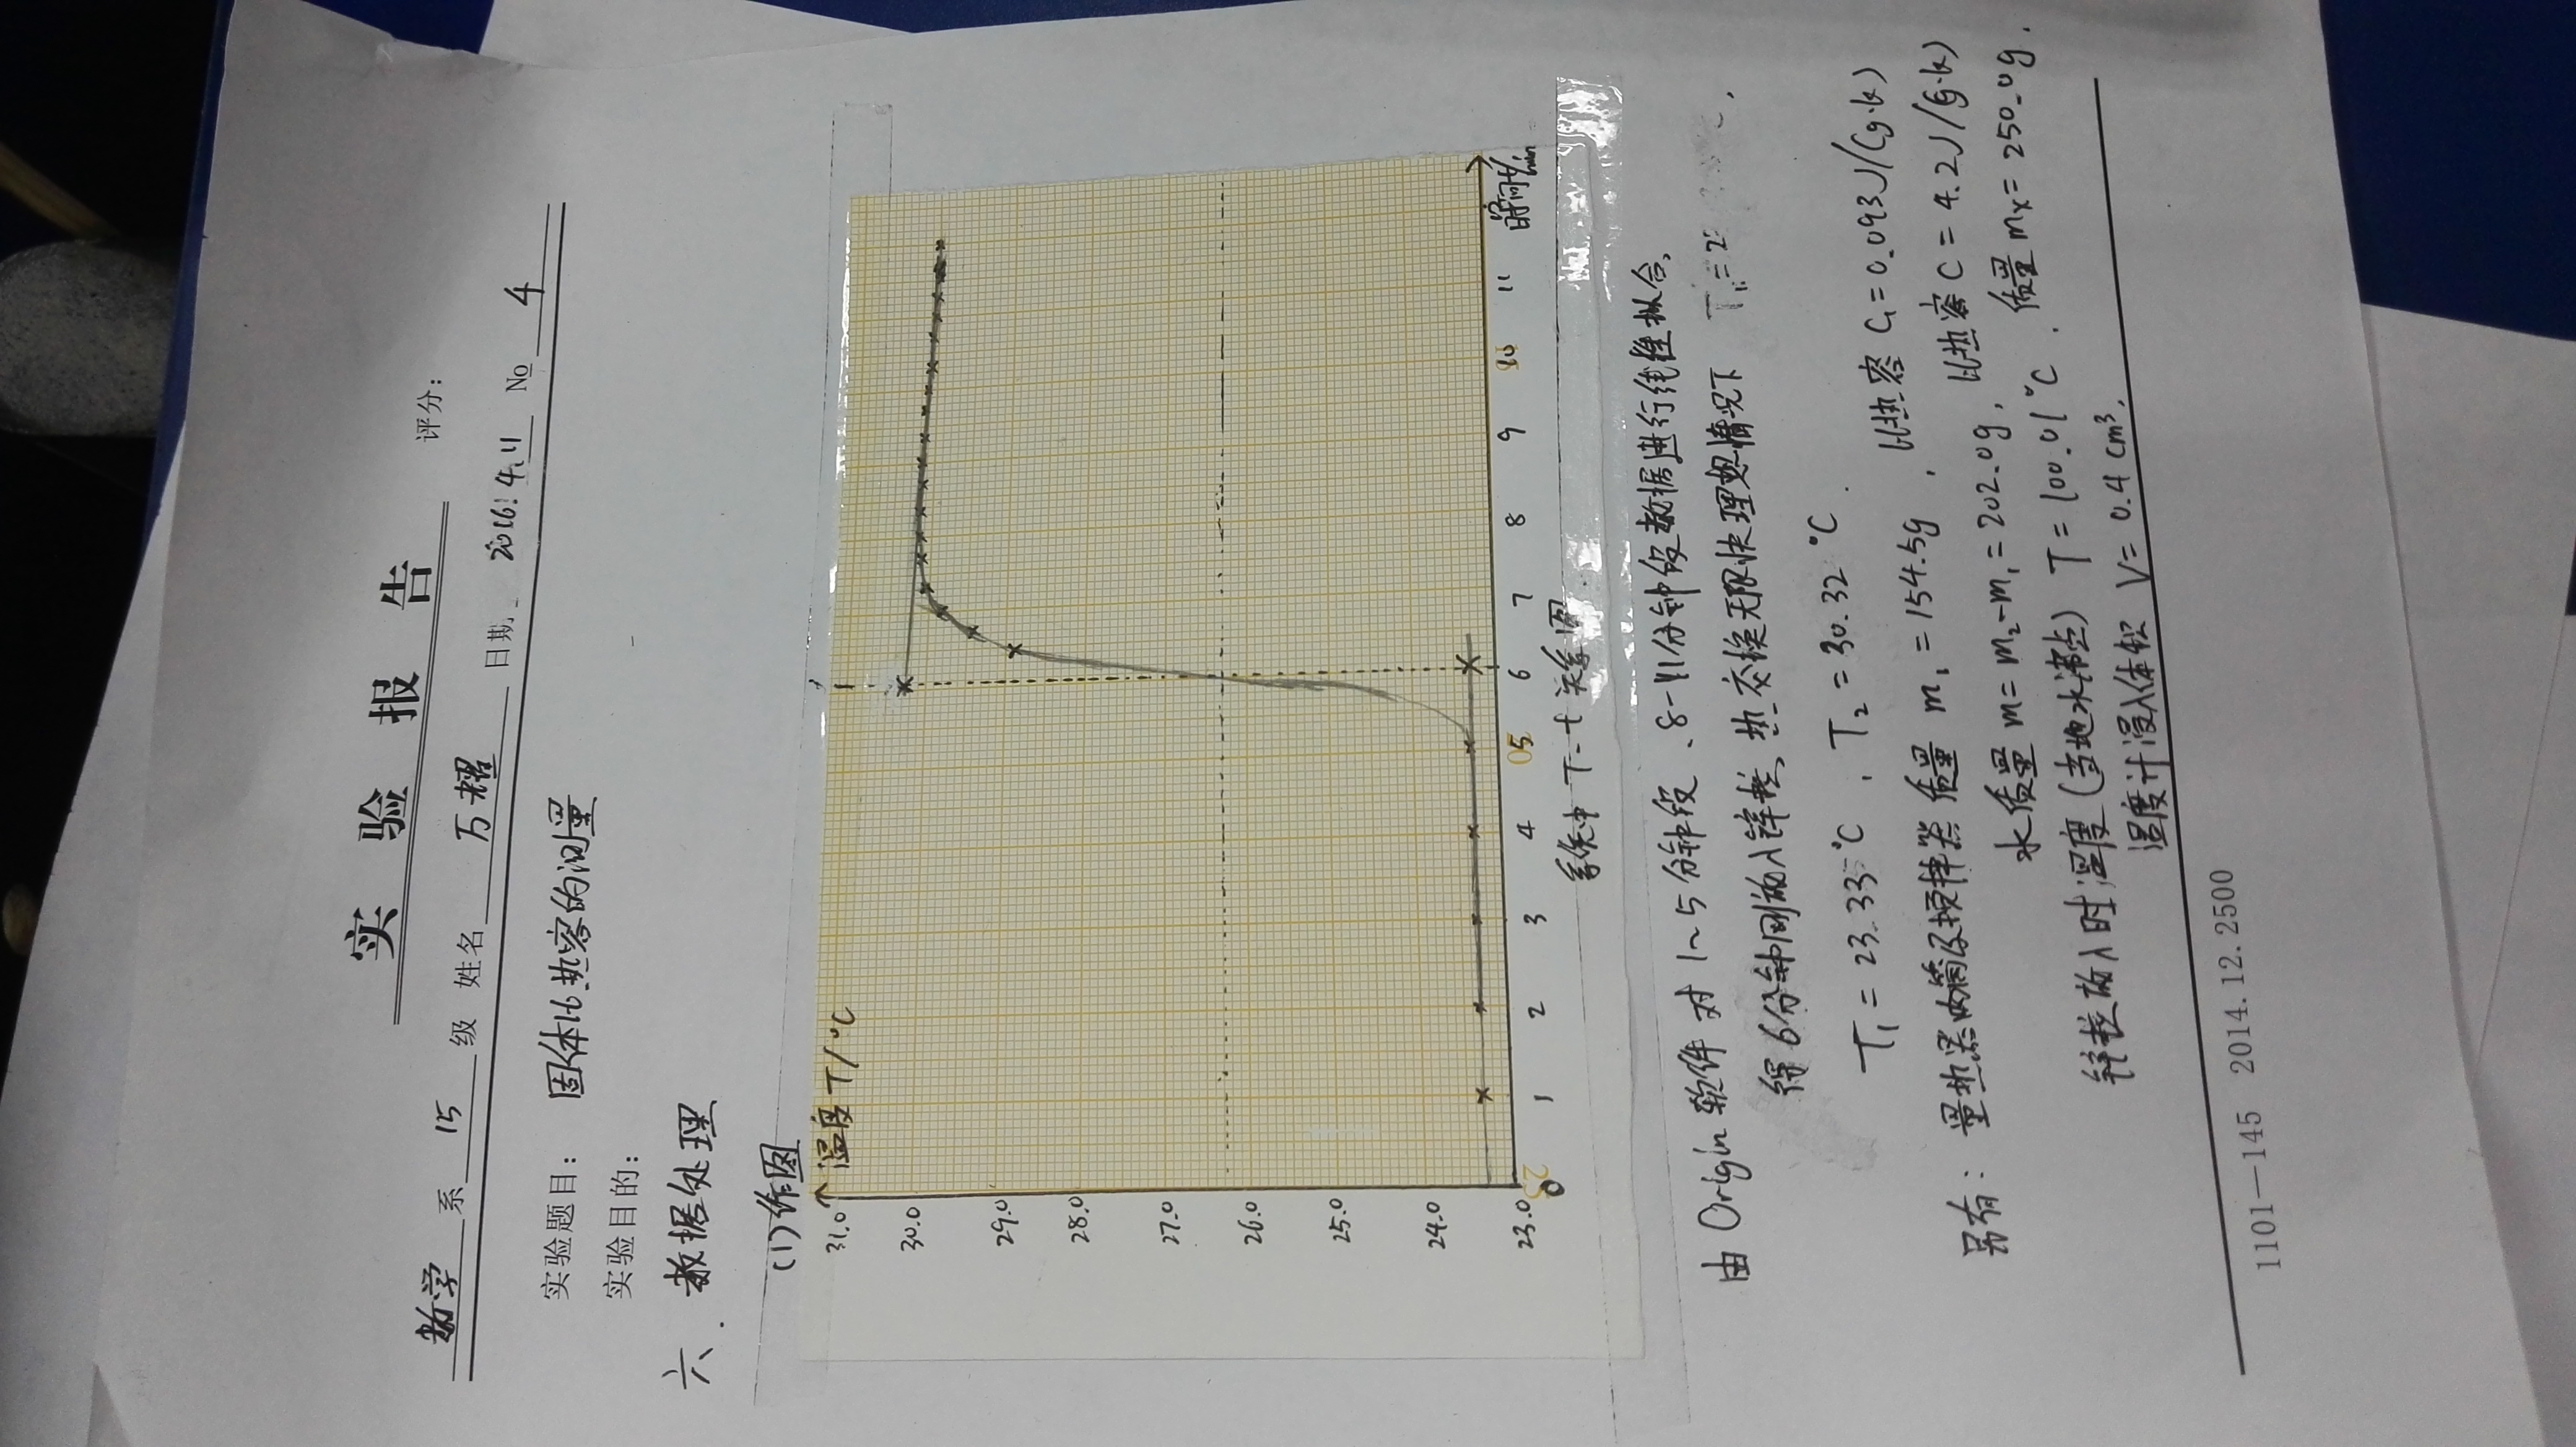 实 验 报 告
评分:
数学 系 15 级 姓名 万耀 日期 2016.4.11 No 4
实验题目: 固体比热容的测量
实验目的:
六. 数据处理
(1)作图
温度 T/℃
31.0
30.0
29.0
28.0
27.0
26.0
25.0
24.0
23.0
0 1 2 3 4 5 6 7 8 9 10 11 时间t/min
系统中 T-t 关系图
由 Origin 软件对 1~5 分钟段、8-11分钟段数据进行线性拟合,
得6分钟刚放入锌粒、热交换无限快理想情况下
T₁ = 23.33℃, T₂ = 30.32 ℃.
另有: 量热器内筒及搅拌器质量 m₁ = 154.5g, 比热容 C₁ = 0.093J/(g·k)
水质量 m = m₂-m₁ = 202.0g, 比热容 C = 4.2J/(g·k)
锌粒放入时温度(当地水沸点) T = 100.01℃. 质量 mx = 250.0g.
温度计浸入体积 V = 0.4 cm³.
1101—145 2014.12.2500